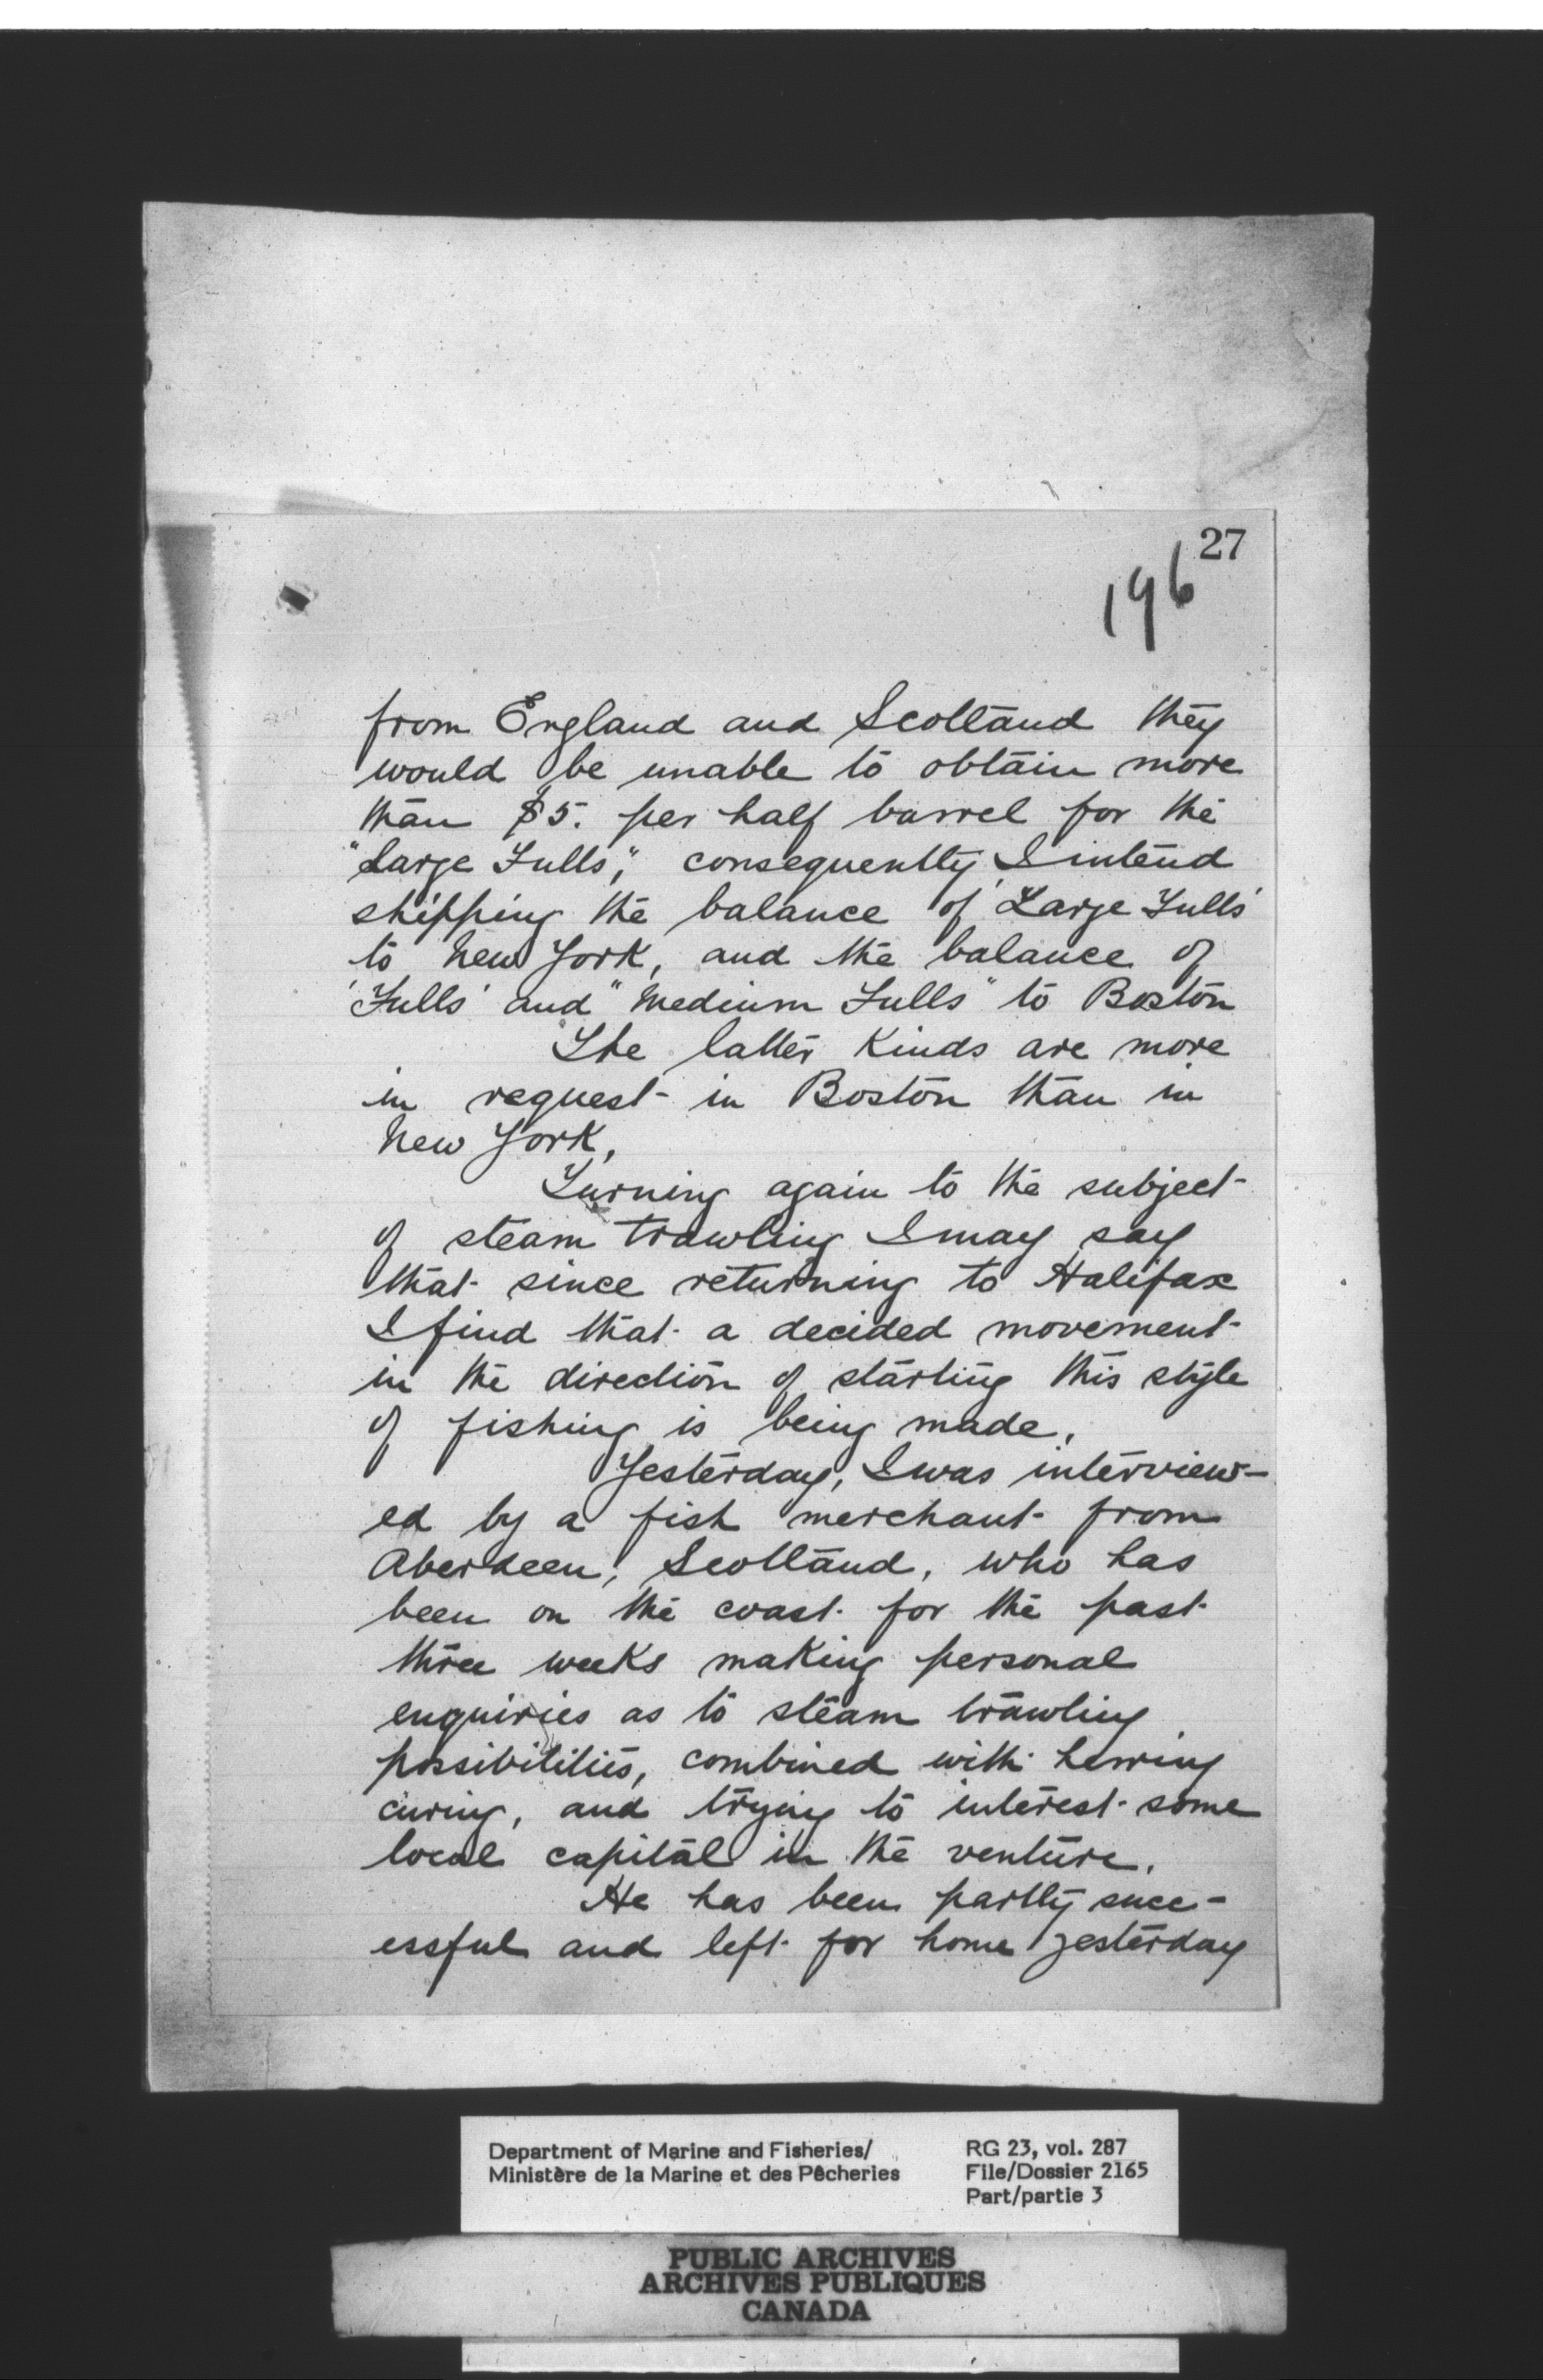 27
196
from England and Scotland they
would be unable to obtain more
than $5. per half barrel for the
"Large Fulls", consequently I intend
shipping the balance of 'Large Fulls'
to New York, and the balance of
'Fulls' and "Medium Fulls" to Boston
The latter kinds are more
in request in Boston than in
New York,
Turning again to the subject
of steam trawling I may say
that since returning to Halifax
I find that a decided movement
in the direction of starting this style
of fishing is being made.
Yesterday, I was interview-
ed by a fish merchant from
Aberdeen, Scotland, who has
been on the coast for the past
three weeks making personal
enquiries as to steam trawling
possibilities, combined with herring
curing, and trying to interest some
local capital in the venture.
He has been partly succ-
essful and left for home yesterday
Department of Marine and Fisheries/
Ministère de la Marine et des Pêcheries
RG 23, vol. 287
File/Dossier 2165
Part/partie 3
PUBLIC ARCHIVES
ARCHIVES PUBLIQUES
CANADA